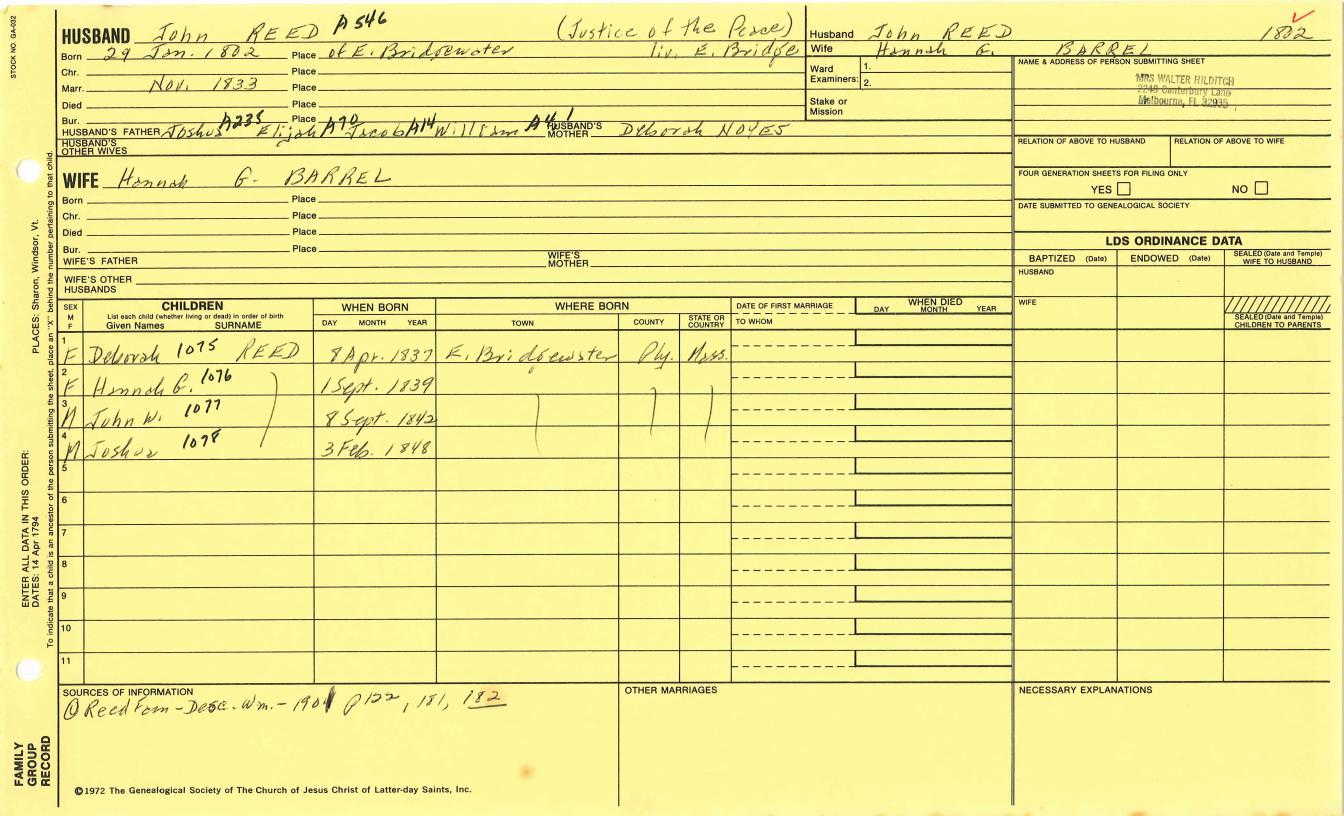 STOCK NO. GA-032
HUSBAND John REED A546 (Justice of the Peace)
Born 29 Jan. 1802 Place of E. Bridgewater liv. E. Bridge
Chr. Place
Marr. Nov. 1833 Place
Died Place
Bur. Place
HUSBAND'S FATHER Joshua A235 Elijah A70 Jacob A14 William A4 1 HUSBAND'S MOTHER Deborah NOYES
HUSBAND'S OTHER WIVES
Husband John REED 1802
Wife Hannah G. BARREL
Ward Examiners: 1.
2.
Stake or Mission
NAME & ADDRESS OF PERSON SUBMITTING SHEET
MRS WALTER HILDITCH
2249 Canterbury Lane
Melbourne, FL 32935
RELATION OF ABOVE TO HUSBAND RELATION OF ABOVE TO WIFE
FOUR GENERATION SHEETS FOR FILING ONLY
YES NO
DATE SUBMITTED TO GENEALOGICAL SOCIETY
WIFE Hannah G. BARREL
Born Place
Chr. Place
Died Place
Bur. Place
WIFE'S FATHER WIFE'S MOTHER
WIFE'S OTHER HUSBANDS
LDS ORDINANCE DATA
BAPTIZED (Date) ENDOWED (Date) SEALED (Date and Temple) WIFE TO HUSBAND
HUSBAND
WIFE
SEALED (Date and Temple) CHILDREN TO PARENTS
SEX M F
CHILDREN
List each child (whether living or dead) in order of birth
Given Names SURNAME
WHEN BORN
DAY MONTH YEAR
WHERE BORN
TOWN COUNTY STATE OR COUNTRY
DATE OF FIRST MARRIAGE
TO WHOM
WHEN DIED
DAY MONTH YEAR
1 F Deborah 1075 REED 8 Apr. 1837 E. Bridgewater Ply. Mass.
2 F Hannah G. 1076 1 Sept. 1839
3 M John W. 1077 8 Sept. 1842
4 M Joshua 1078 3 Feb. 1848
5
6
7
8
9
10
11
SOURCES OF INFORMATION
① Reed Fam - Desc. Wm. - 1901 p 122, 181, 182
OTHER MARRIAGES
NECESSARY EXPLANATIONS
©1972 The Genealogical Society of The Church of Jesus Christ of Latter-day Saints, Inc.
FAMILY GROUP RECORD
ENTER ALL DATA IN THIS ORDER:
DATES: 14 Apr 1794 PLACES: Sharon, Windsor, Vt.
To indicate that a child is an ancestor of the person submitting the sheet, place an "X" behind the number pertaining to that child.